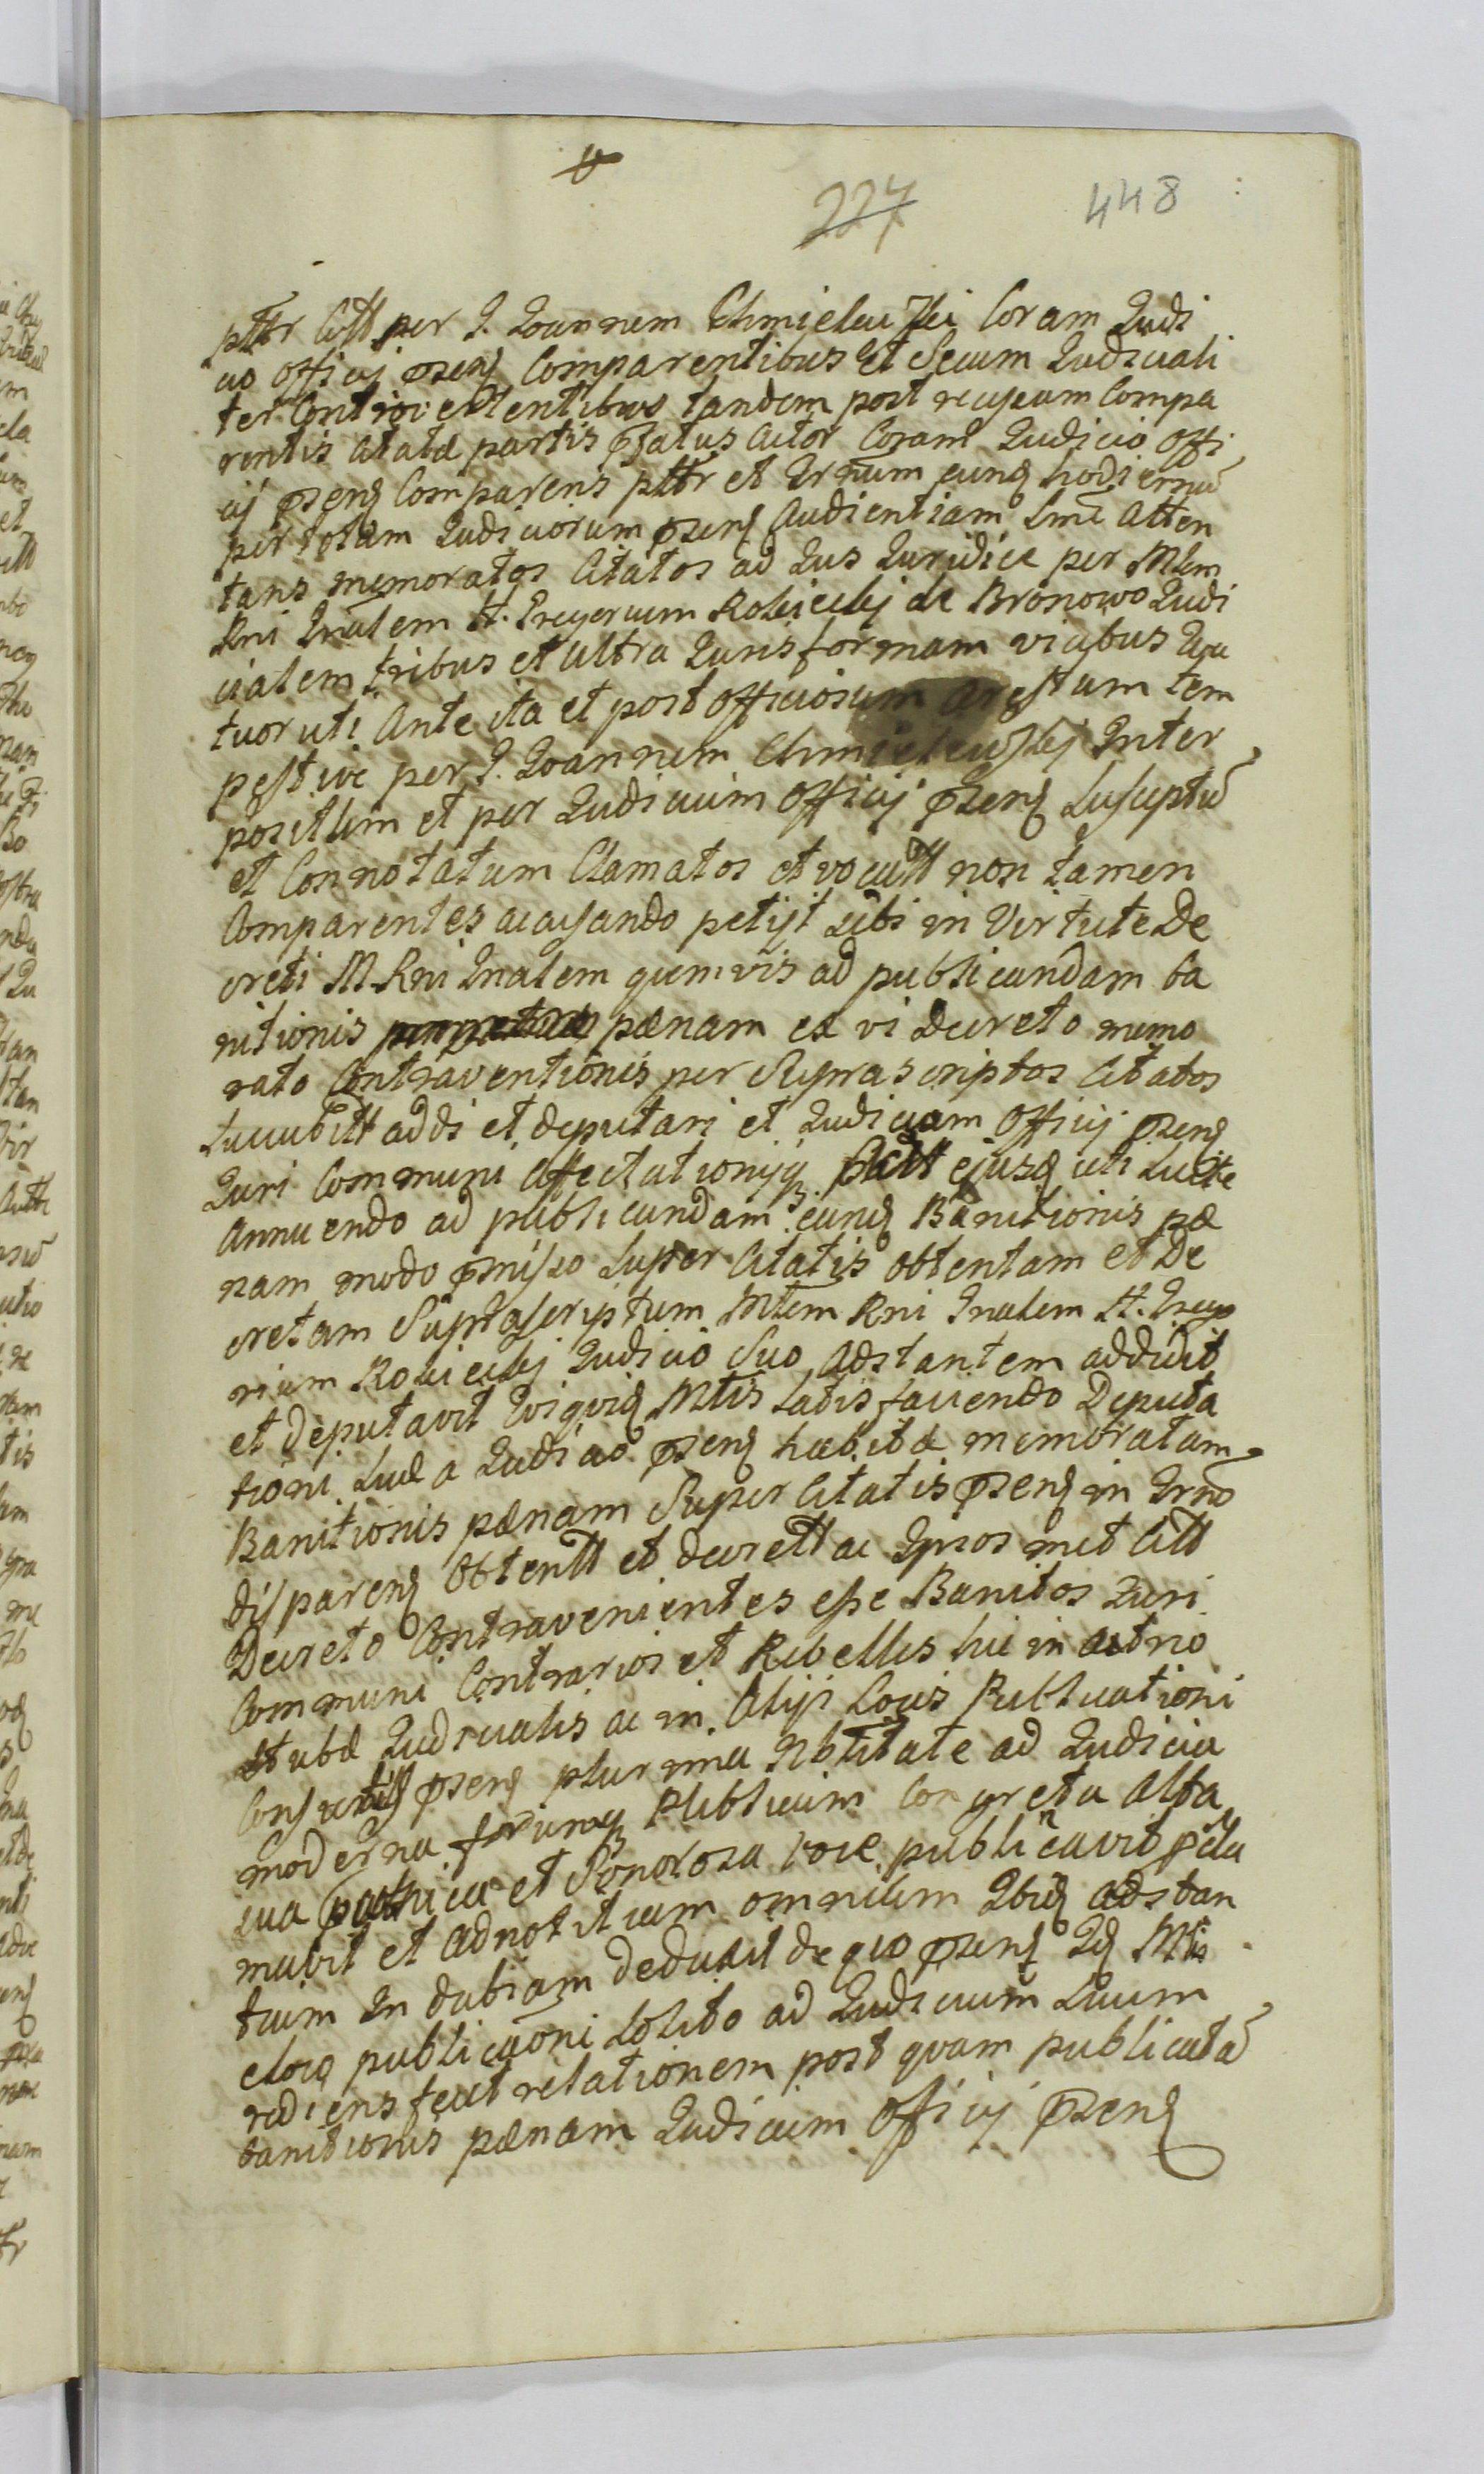 227 448
pttr Citt per G. Joannem Chmielewski Coram Judi
cio officij pseng Comparentibus Et Secum Judiciali
ter Controvertentibus tandem post recusum Compa
rentis Citatæ partis Pfatus Actor Coram Judicio Offi
cij pseng Comparens pttr et Ternum eung hodiernū
per totam Judiciorum pseng Audientiam Lme Atten
tans memoratos Citatos ad Jus Juridice per Mlem
Rni Gnalem H. Gregorium Rokicekj de Bronowo Judi
cialem tribus et Ultra Juris formam vicibus Qua
tuor uti Ante ita et post officiosum Arestum tem
pestive per G. Joannem Chmielewskj Inter
positum et per Judicium Officij Pseng Susceptū
et Connotatum Clamatos et vocatt non tamen
Comparentes acusando petijt sibi in Virtute De
creti M. Rni Gnalem quemvis ad publicandam ba
nitionis pænam ex vi Decreto memo
rato Contraventionis per Suprascriptos Citatos
Succubitt addi et deputari et Judicium Officij pseng
Juri Communi Affectationijq Patt ejusq uti Licite
Annuendo ad publicandam eung Banitionis pæ
nam modo pmisso Super Citatis obtentam et De
cretam Suprascriptum Mlem Rni Gnalem H. Grego
rium Rokicekj Judicio Suo Adstantem addidit
et deputavit Quiquid Mlis satisfaciendo Deputa
tioni Suæ a Judicio pseng habitæ memoratam
Banitionis pænam Super Citatis Pseng in Trno
disparens Obtentt et decrett ac Ipsos met Citt
Decreto Contravenientes esse Banitos Juri
Communi Contrarios et Rebelles hic in Actrio
Stubæ Judicialis ac in Alijs Locis Publicationi
Consuetis pseng plurima Nblitate ad Judicia
moderna forumq Publicum Congreta Alta
sua et Sonorosa voce publicavit pcla
mavit et ad notitiam omnium Ibidq adstan
tium In dubiam Deduxit de quo pseng Idq Mlis
eloco publicaōni Solito ad Judicium Suum
rediens fecit relationem post quam publicatā
banitionis pænam Judicium Officij Pseng